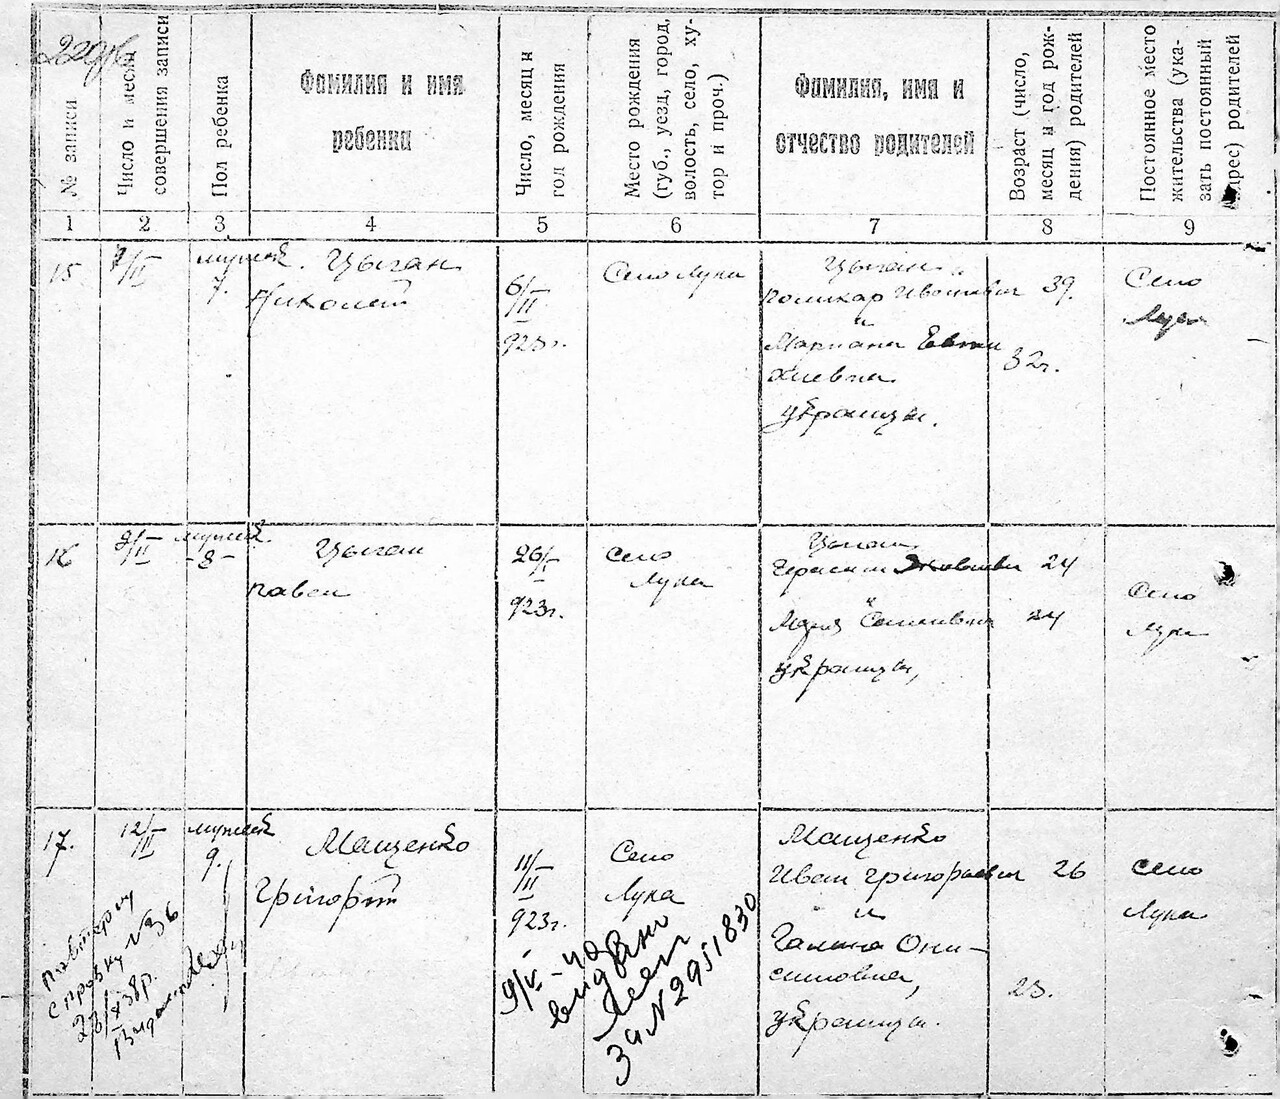 № записи
Число и месяц
совершения записи
Пол ребенка
Фамилия и имя
ребенка
Число, месяц и
год рождения
Место рождения
(губ., уезд, город,
волость, село, ху-
тор и проч.)
Фамилия, имя и
отчество родителей
Возраст (число,
месяц и год рож-
дения) родителей
Постоянное место
жительства (ука-
зать постоянный
адрес) родителей
1 2 3 4 5 6 7 8 9
15
/II
мужск.
7.
Цыган
Николай
6/II
923г.
Село Лука
Цыган
Поликар Иванович 39.
и
Мариана Евти
хиевна 32г.
украинцы.
Село
Лука
16
9/II
мужск.
-8-
Цыган
Павел
26/I
923г.
Село
Лука
Цыган
Герасим Яковлевич 24
и
Мария Семеновна 24
украинцы,
Село
Лука
17.
12/II
мужск
9.
Мащенко
Григорий
11/II
923г.
Село
Лука
Мащенко
Иван Григориевич 26
и
Галина Они-
симовна, 23.
украинцы.
Село
Лука
Повторну
справку №36
28/X 38р.
Видано
9/V-40
видано
за №2951830